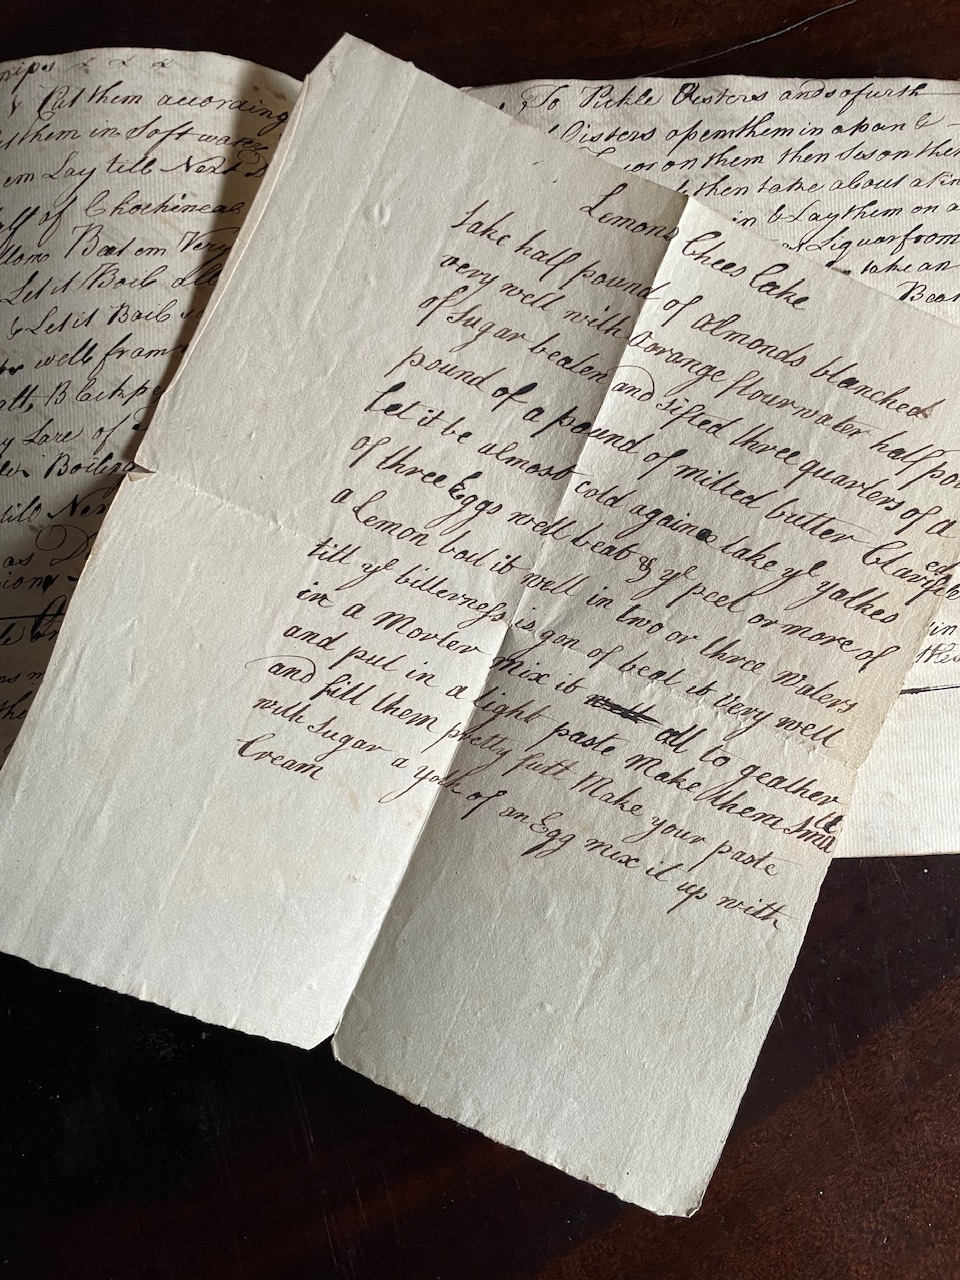 Lemons Chees Cake
take half pound of almonds blanched
very well with Oorange flour water half
of sugar beaten and sifted three quarters of a
pound of a pound of milted butter Clarified
let it be almost cold againe take ye yalkes
of three Eggs well beat & ye peel or more of
a Lemon boil it well in two or three waters
till ye bitterness is gon of beat it very well
in a Morter mix it all to geather
and put in a light paste Make them small
and fill them pretty full Make your paste
with sugar a yolk of an Egg mix it up with
Cream
Put them according
them in Soft water
em Lay till Next
of Chochineas
Beat em Very
Let it Boil
& Let it Boil
well from
Care of
Boiling
till
as
To Pickle Oisters and so furth
Oisters open them in a pan &
on them then
then take about a
in & Lay them on a
Liquar from
take an
Beat
in